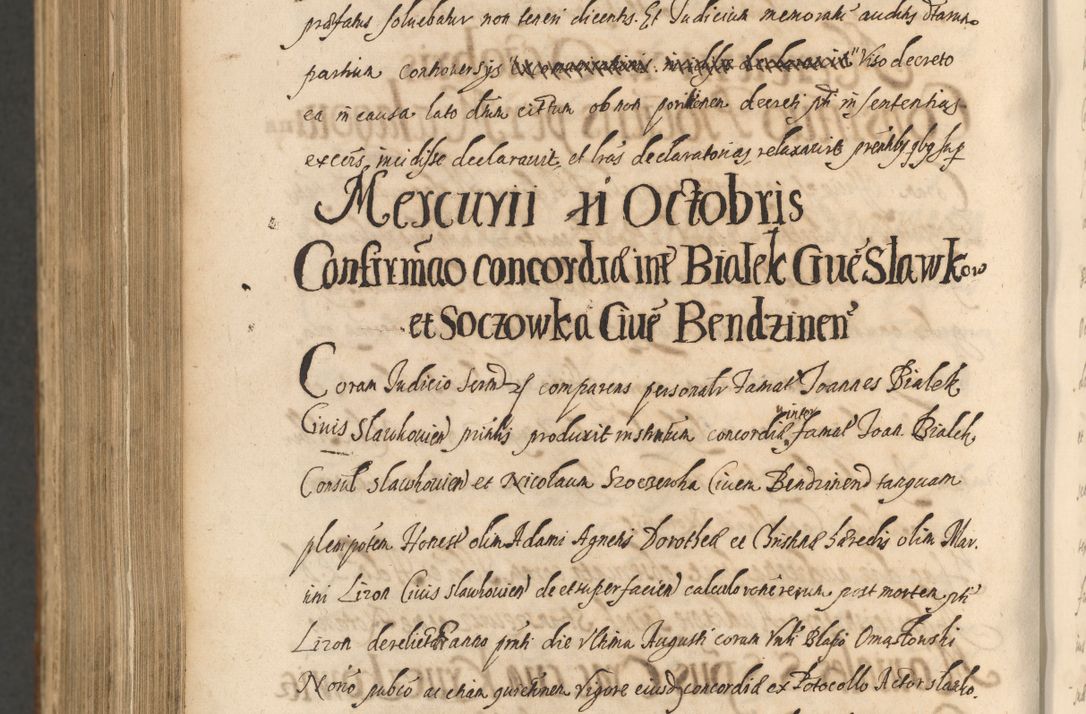 præfatus soluebatur non teneri dicentis. Et Judicium memorat auditis dtarum
partium controversys Viso decreto
ea in causa lato dum citatum ob non paritionem decreti pti in sententias
excōis incidisse declarauit, et lras declaratorias relaxavit
Mercurii 11 Octobris
Confirmāo concordiæ intͤ Bialek Ciuē Slawkow
et Soczowka Ciuē Bendzinenͤ
Coram Judicio comparens personalr Famatͦ Joannes Bialek
Ciuis Slawkouien produxit concordiæ inter famat Joan. Bialek
Consul Slawkouien et Nicolaum Szoczewka Ciuem Bendzinen tanquam
plenipoten Honest olim Adami Agnetis Dorotheæ et Christinæ hæredis olim Mar.
tini Lizon Ciuis Slawkouien de et super facien calculo rerum post mortem pti
Lizon derelict anno prnti die vltima Augusti coram Blasio Omastowski
Notrio pubco ac etiam vigore eiusd concordiæ ex Potocollo Actor slawko.